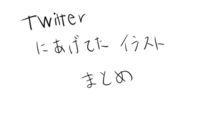 Twitter
にあげてた イラスト
まとめ